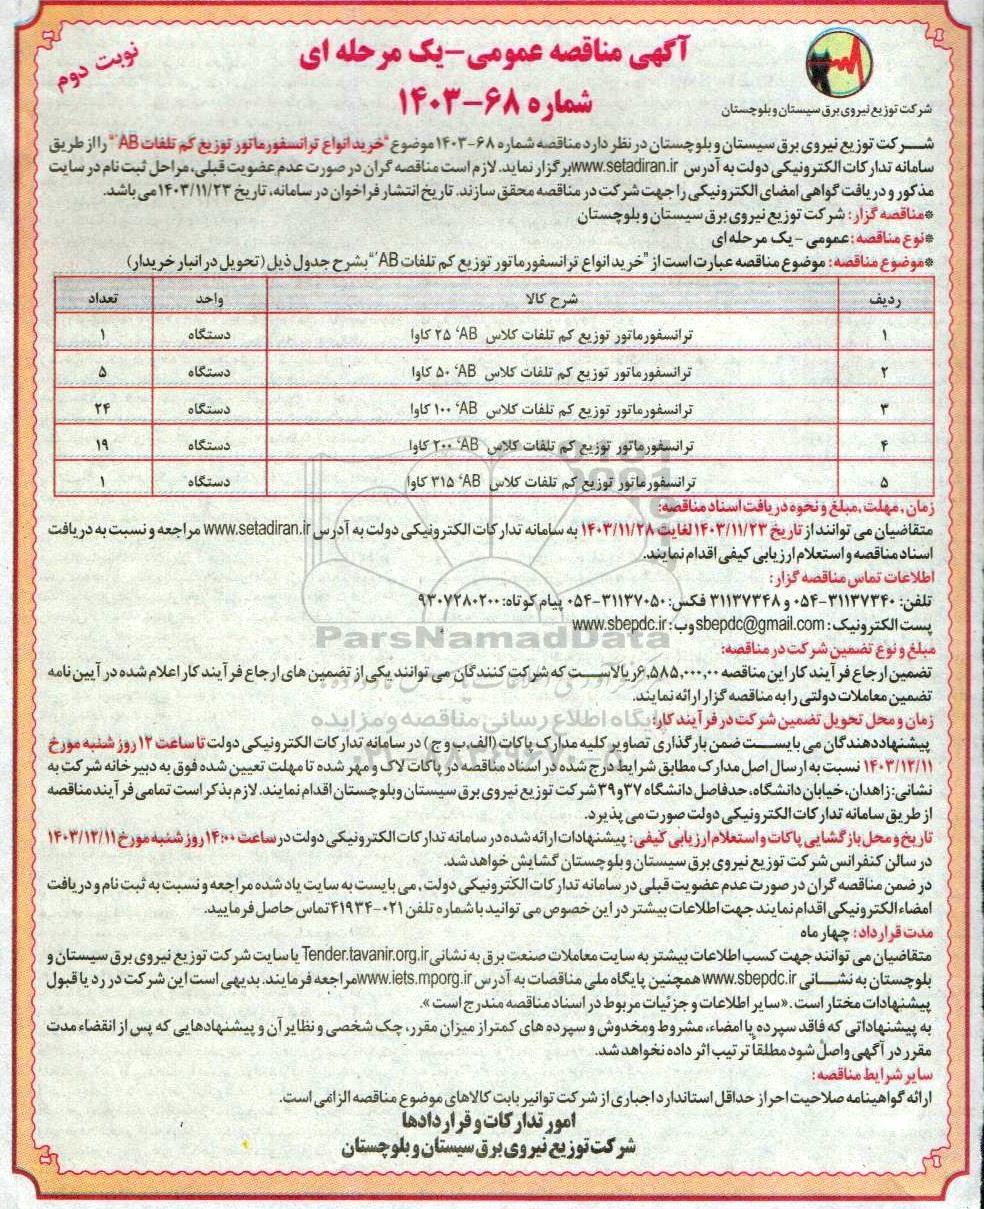 آگهی مناقصه عمومی-یک مرحله ای
نوبت دوم
شماره ۶۸-۱۴۰۳
شرکت توزیع نیروی برق سیستان و بلوچستان
شـــرکت توزیع نیروی برق سیستان و بلوچستان در نظر دارد مناقصه شماره ۶۸-۱۴۰۳ موضوع "خرید انواع ترانسفورماتور توزیع کم تلفات AB'" را از طریق
سامانه تدارکات الکترونیکی دولت به آدرس www.setadiran.ir برگزار نماید. لازم است مناقصه گران در صورت عدم عضویت قبلی، مراحل ثبت نام در سایت
مذکور و دریافت گواهی امضای الکترونیکی را جهت شرکت در مناقصه محقق سازند. تاریخ انتشار فراخوان در سامانه، تاریخ ۱۴۰۳/۱۱/۲۳ می باشد.
*مناقصه گزار: شرکت توزیع نیروی برق سیستان و بلوچستان
*نوع مناقصه: عمومی - یک مرحله ای
*موضوع مناقصه: موضوع مناقصه عبارت است از "خرید انواع ترانسفورماتور توزیع کم تلفات AB'" بشرح جدول ذیل (تحویل در انبار خریدار)
ردیف شرح کالا واحد تعداد
۱ ترانسفورماتور توزیع کم تلفات کلاس AB‘ ۲۵ کاوا دستگاه ۱
۲ ترانسفورماتور توزیع کم تلفات کلاس AB‘ ۵۰ کاوا دستگاه ۵
۳ ترانسفورماتور توزیع کم تلفات کلاس AB‘ ۱۰۰ کاوا دستگاه ۲۴
۴ ترانسفورماتور توزیع کم تلفات کلاس AB‘ ۲۰۰ کاوا دستگاه ۱۹
۵ ترانسفورماتور توزیع کم تلفات کلاس AB‘ ۳۱۵ کاوا دستگاه ۱
زمان، مهلت، مبلغ و نحوه دریافت اسناد مناقصه:
متقاضیان می توانند از تاریخ ۱۴۰۳/۱۱/۲۳ لغایت ۱۴۰۳/۱۱/۲۸ به سامانه تدارکات الکترونیکی دولت به آدرس www.setadiran.ir مراجعه و نسبت به دریافت
اسناد مناقصه و استعلام ارزیابی کیفی اقدام نمایند.
اطلاعات تماس مناقصه گزار:
تلفن: ۳۱۱۳۷۳۴۰-۰۵۴ و ۳۱۱۳۷۳۴۸ فکس: ۳۱۱۳۷۰۵۰-۰۵۴ پیام کوتاه: ۹۳۰۷۲۸۰۲۰۰
پست الکترونیک: sbepdc@gmail.com وب: www.sbepdc.ir
ParsNamadData
مبلغ و نوع تضمین شرکت در مناقصه:
تضمین ارجاع فرآیند کار این مناقصه ۶,۵۸۵,۰۰۰,۰۰ ریالاســـت که شرکت کنندگان می توانند یکی از تضمین های ارجاع فرآیند کار اعلام شده در آیین نامه
تضمین معاملات دولتی را به مناقصه گزار ارائه نمایند.
پایگاه اطلاع رسانی مناقصه و مزایده
زمان و محل تحویل تضمین شرکت در فرآیند کار:
پیشنهاددهندگان می بایســـت ضمن بارگذاری تصاویر کلیه مدارک پاکات (الف، ب و ج) در سامانه تدارکات الکترونیکی دولت تا ساعت ۱۲ روز شنبه مورخ
۱۴۰۳/۱۲/۱۱ نسبت به ارسال اصل مدارک مطابق شرایط درج شده در اسناد مناقصه در پاکات لاک و مهر شده تا مهلت تعیین شده فوق به دبیرخانه شرکت به
نشانی: زاهدان، خیابان دانشگاه، حدفاصل دانشگاه ۳۷ و ۳۹ شرکت توزیع نیروی برق سیستان وبلوچستان اقدام نمایند. لازم بذکر است تمامی فرآیند مناقصه
از طریق سامانه تدارکات الکترونیکی دولت صورت می پذیرد.
تاریخ و محل بازگشایی پاکات و استعلام ارزیابی کیفی: پیشنهادات ارائه شده در سامانه تدارکات الکترونیکی دولت در ساعت ۱۴:۰۰ روز شنبه مورخ ۱۴۰۳/۱۲/۱۱
در سالن کنفرانس شرکت توزیع نیروی برق سیستان و بلوچستان گشایش خواهد شد.
در ضمن مناقصه گران در صورت عدم عضویت قبلی در سامانه تدارکات الکترونیکی دولت، می بایست به سایت یاد شده مراجعه و نسبت به ثبت نام و دریافت
امضاء الکترونیکی اقدام نمایند جهت اطلاعات بیشتر در این خصوص می توانید با شماره تلفن ۰۲۱-۴۱۹۳۴ تماس حاصل فرمایید.
مدت قرارداد: چهار ماه
متقاضیان می توانند جهت کسب اطلاعات بیشتر به سایت معاملات صنعت برق به نشانی Tender.tavanir.org.ir یا سایت شرکت توزیع نیروی برق سیستان و
بلوچستان به نشـــانی www.sbepdc.ir همچنین پایگاه ملی مناقصات به آدرس www.iets.mporg.ir مراجعه فرمایند. بدیهی است این شرکت در رد یا قبول
پیشنهادات مختار است. «سایر اطلاعات و جزئیات مربوط در اسناد مناقصه مندرج است».
به پیشنهاداتی که فاقد سپرده یا امضاء، مشروط و مخدوش و سپرده های کمتر از میزان مقرر، چک شخصی و نظایر آن و پیشنهادهایی که پس از انقضاء مدت
مقرر در آگهی واصل شود مطلقاً ترتیب اثر داده نخواهد شد.
سایر شرایط مناقصه:
ارائه گواهینامه صلاحیت احراز حداقل استاندارد اجباری از شرکت توانیر بابت کالاهای موضوع مناقصه الزامی است.
امور تدارکات و قراردادها
شرکت توزیع نیروی برق سیستان و بلوچستان